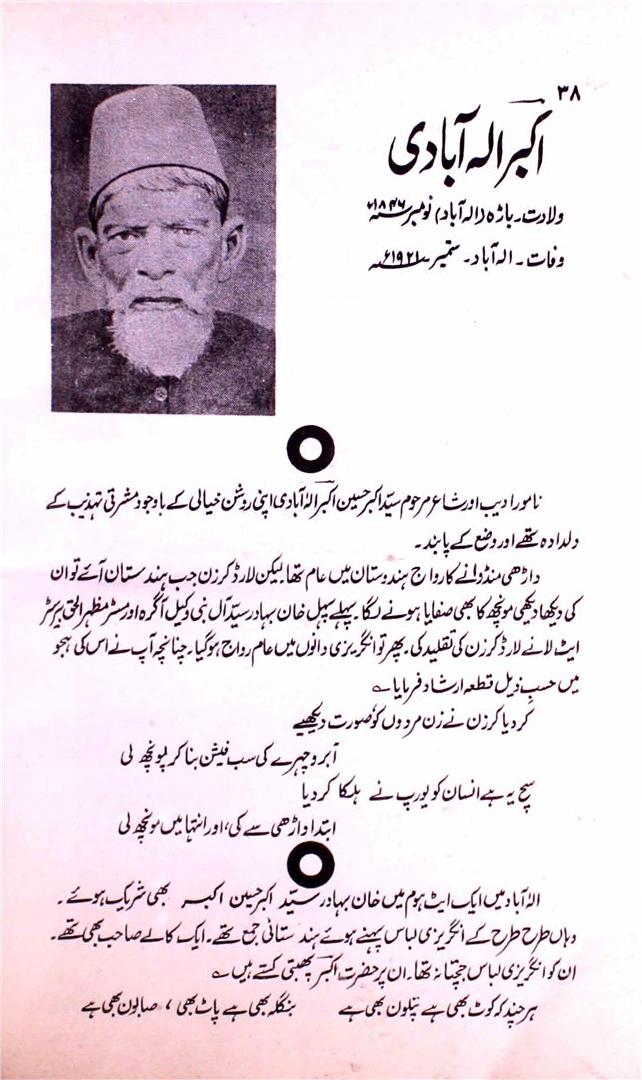 ۳۸
اکبر الہ آبادی
ولادت۔ باڑہ (الہ آباد) نومبر ۱۸۴۶ء
وفات۔ الہ آباد۔ ستمبر ۱۹۲۱ء
نامور ادیب اور شاعر مرحوم سید اکبر حسین اکبرؔ الہٰ آبادی اپنی روشن خیالی کے باوجود مشرقی تہذیب کے
دلدادہ تھے اور وضع کے پابند۔
داڑھی منڈوانے کا رواج ہندوستان میں عام تھا لیکن لارڈ کرزن جب ہندستان آئے تو ان
کی دیکھا دیکھی مونچھ کا بھی صفایا ہونے لگا۔ پہلے پہل خان بہادر سید آل نبی وکیل آگرہ اور مسٹر مظہر الحق بیرسٹر
ایٹ لا نے لارڈ کرزن کی تقلید کی۔ پھر تو انگریزی دانوں میں عام رواج ہو گیا۔ چنانچہ آپ نے اس کی ہجو
میں حسب ذیل قطعہ ارشاد فرمایا ؎
کر دیا کرزن نے زن مردوں کو صورت دیکھیے
آبرو چہرے کی سب فیشن بنا کر پونچھ لی
سچ یہ ہے انسان کو یورپ نے ہلکا کر دیا
ابتدا داڑھی سے کی، اور انتہا میں مونچھ لی
الہٰ آباد میں ایک ایٹ ہوم میں خان بہادر سید اکبر حسین اکبر بھی شریک ہوئے۔
وہاں طرح طرح کے انگریزی لباس پہنے ہوئے ہندستانی جمع تھے۔ ایک کالے صاحب بھی تھے۔
ان کو انگریزی لباس جچتا نہ تھا۔ ان پر حضرت اکبرؔ پھبتی کستے ہیں ؎
ہر چند کہ کوٹ بھی ہے پتلون بھی ہے بنگلہ بھی ہے پاٹ بھی، صابون بھی ہے